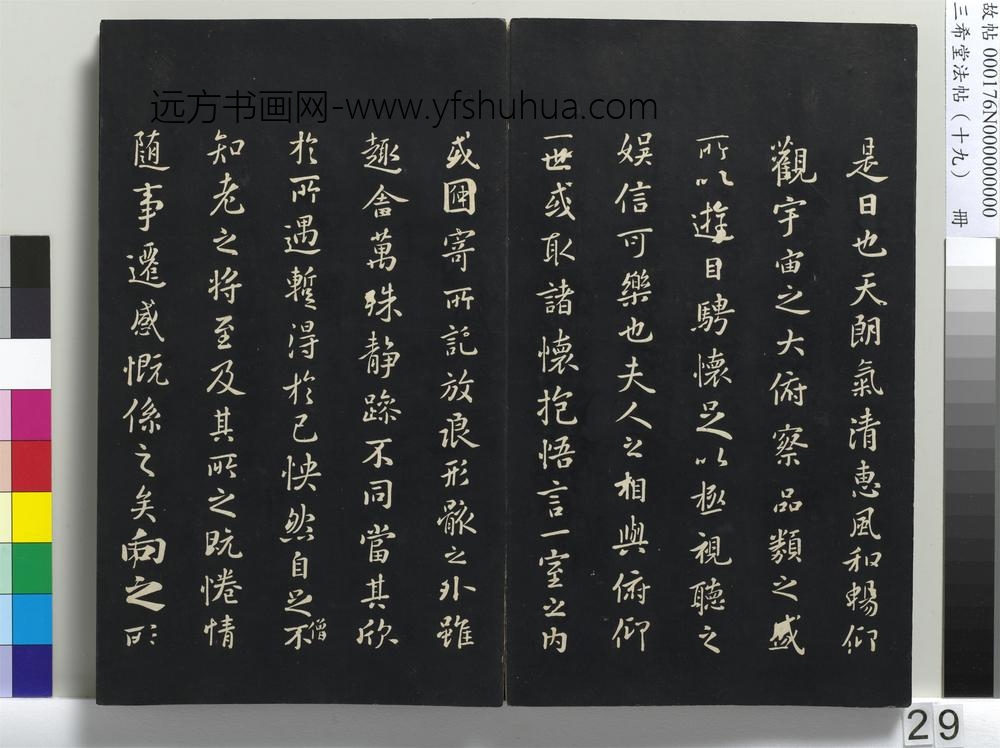 故帖 000176N000000000
三希堂法帖（十九） 冊
远方书画网-www.yfshuhua.com
是日也天朗氣清惠風和暢仰
觀宇宙之大俯察品類之盛
所以遊目騁懷足以極視聽之
娛信可樂也夫人之相與俯仰
一世或取諸懷抱悟言一室之內
或因寄所託放浪形骸之外雖
趣舍萬殊静躁不同當其欣
於所遇蹔得於己怏然自足不
僧
知老之将至及其所之既惓情
隨事遷感慨係之矣向之所
29